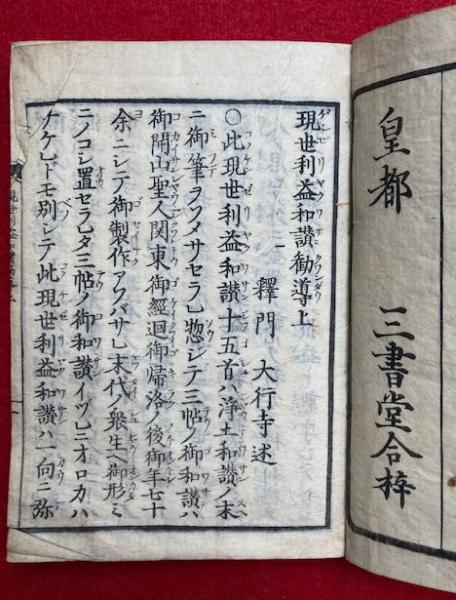 皇都　三書堂合梓
現世利益和讃勧導上
釋門　大行寺述
〇此現世利益和讃十五首ハ浄土和讃ノ末
ニ御筆ヲソメサセラレ惣シテ三帖ノ御和讃ハ
御開山聖人関東御經廻御帰洛ノ後御年七十
余ニシテ御製作アソバサレ末代ノ衆生ヘ御形ミ
ニノコシ置セラレタ三帖ノ御和讃イツレニオロカハ
ナケレドモ別シテ此現世利益和讃ハ一向ニ弥